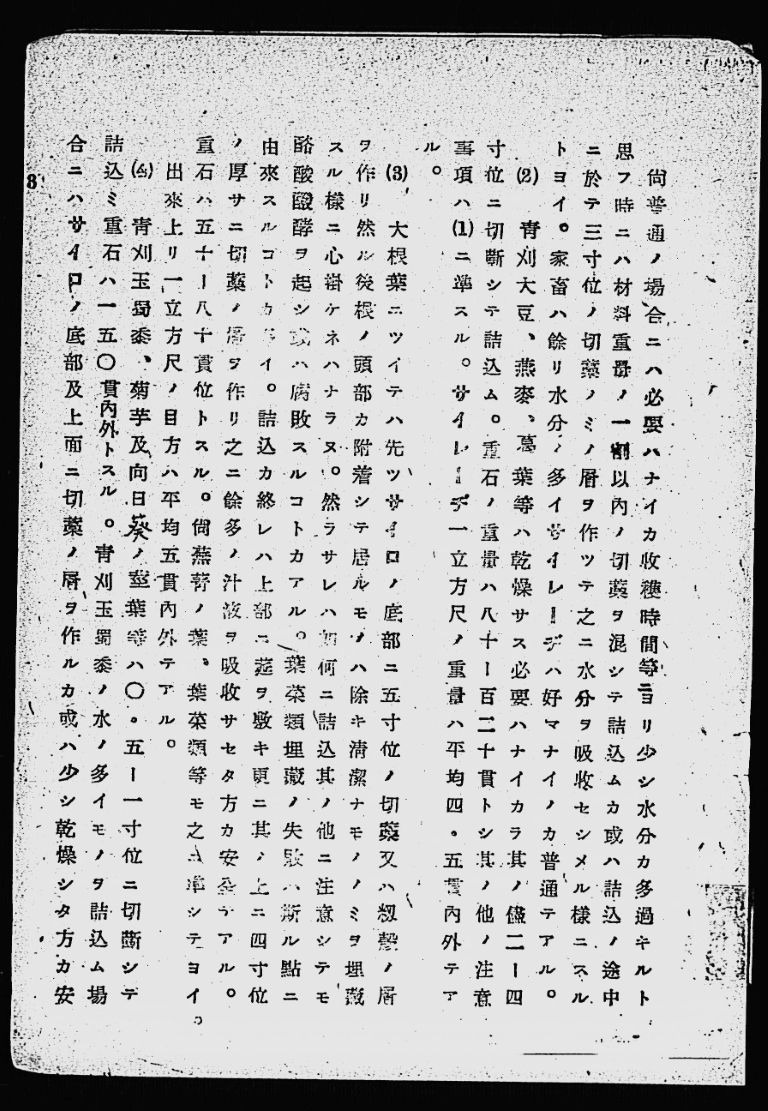 尙普通ノ場合ニハ必要ハナイカ收穫時間等ニヨリ少シ水分カ多過キルト
思フ時ニハ材料重量ノ一割以內ノ切藁ヲ混シテ詰込ムカ或ハ詰込ノ途中
ニ於テ三寸位ノ切藁ノミノ層ヲ作ツテ之ニ水分ヲ吸收セシメル樣ニスル
トヨイ。家畜ハ餘リ水分ノ多イサイレーヂハ好マナイノカ普通テアル。
(2) 靑刈大豆、燕麥、葛葉等ハ乾燥サス必要ハナイカラ其ノ儘二ー四
寸位ニ切斷シテ詰込ム。重石ノ重量ハ八十ー百二十貫トシ其ノ他ノ注意
事項ハ(1)ニ準スル。サイレーヂ一立方尺ノ重量ハ平均四。五貫內外テア
ル。
(3) 大根葉ニツイテハ先ツサイロノ底部ニ五寸位ノ切藁又ハ籾殼ノ層
ヲ作リ然ル後根ノ頭部カ附着シテ居ルモノハ除キ淸潔ナモノノミヲ埋藏
スル樣ニ心掛ケネハナラヌ。然ラサレハ如何ニ詰込其ノ他ニ注意シテモ
酪酸醱酵ヲ起シ或ハ腐敗スルコトカアル。葉菜類埋藏ノ失敗ハ斯ル點ニ
由來スルコトカ多イ。詰込カ終レハ上部ニ莚ヲ敷キ更ニ其ノ上ニ四寸位
ノ厚サニ切藁ノ層ヲ作リ之ニ餘多ノ汁液ヲ吸收サセタ方カ安全テアル。
重石ハ五十ー八十貫位トスル。尙蕪菁ノ葉、葉菜類等モ之ニ準シテヨイ。
出來上リ一立方尺ノ目方ハ平均五貫內外テアル。
(4) 靑刈玉蜀黍、菊芋及向日葵ノ莖葉等ハ〇。五ー一寸位ニ切斷シテ
詰込ミ重石ハ一五〇貫內外トスル。靑刈玉蜀黍ノ水ノ多イモノヲ詰込ム場
合ニハサイロノ底部及上面ニ切藁ノ層ヲ作ルカ或ハ少シ乾燥シタ方カ安
8